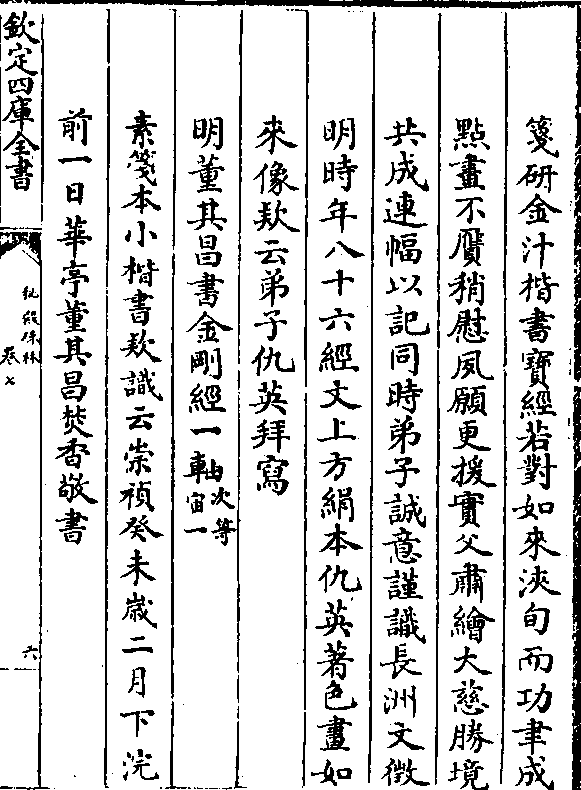 箋研金汁楷書寶經若對如來浹旬而功聿成
點畫不贋稍慰夙願更援實父肅繪大慈勝境
共成連幅以記同時弟子誠意謹識長洲文徵
明時年八十六經文上方絹本仇英著色畫如
來像欵云弟子仇英拜寫
明董其昌書金剛經一軸次等宙一
素箋本小楷書欵識云崇禎癸未歲二月下浣
前一日華亭董其昌焚香敬書
欽定四庫全書
秘殿珠林
卷七
六